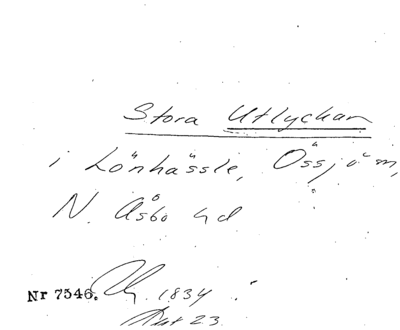 Stora Utlyckan
i Lönhässle, Össjö sn,
N. Åsbo hd
Nr 7546. 1834
23